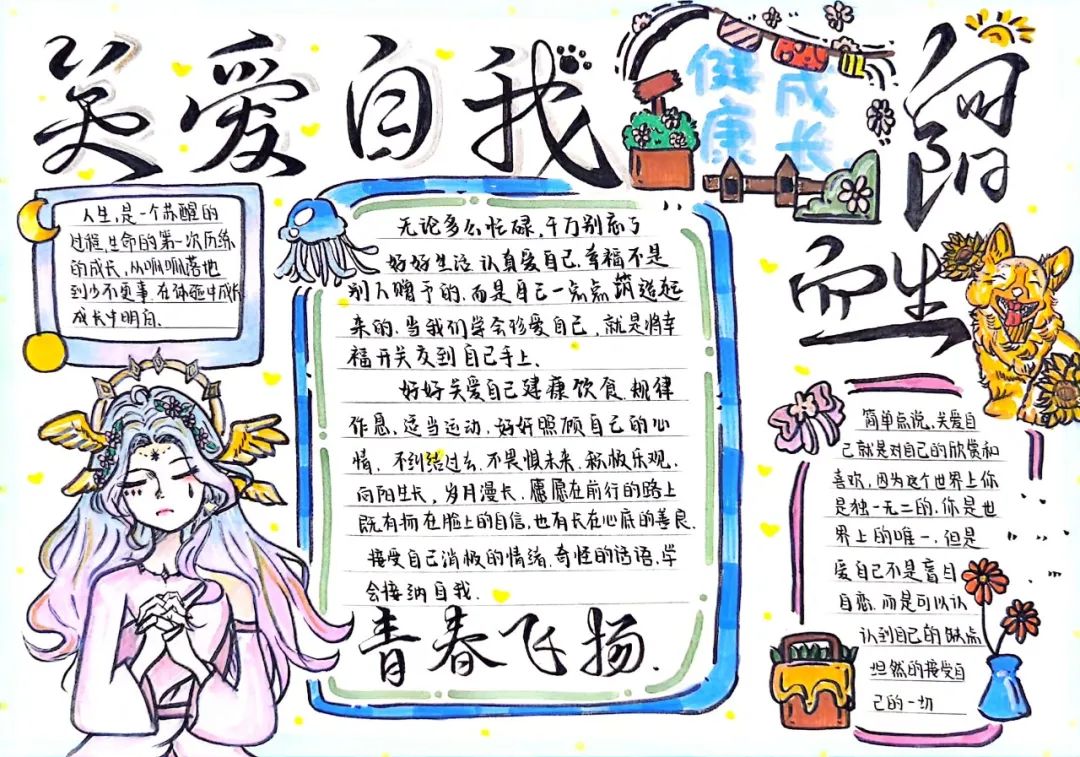 关爱自我
健康
成长
向阳
而生
人生，是一个苏醒的
过程，生命的第一次历练
的成长，从呱呱落地
到少不更事，在体验中成长
成长中明白。
无论多么忙碌，千万别忘了
好好生活，认真爱自己，幸福不是
别人赠予的，而是自己一点点筑造起
来的，当我们学会珍爱自己，就是将幸
福开关交到自己手上。
好好关爱自己，健康饮食，规律
作息，适当运动，好好照顾自己的心
情，不纠结过去，不畏惧未来，积极乐观，
向阳生长，岁月漫长，愿愿在前行的路上
既有扬在脸上的自信，也有长在心底的善良。
接受自己消极的情绪，奇怪的话语，学
会接纳自我。
青春飞扬.
简单点说，关爱自
己就是对自己的欣赏和
喜欢，因为这个世界上你
是独一无二的，你是世
界上的唯一，但是
爱自己不是盲目
自恋，而是可以认
认到自己的缺点
坦然的接受自
己的一切